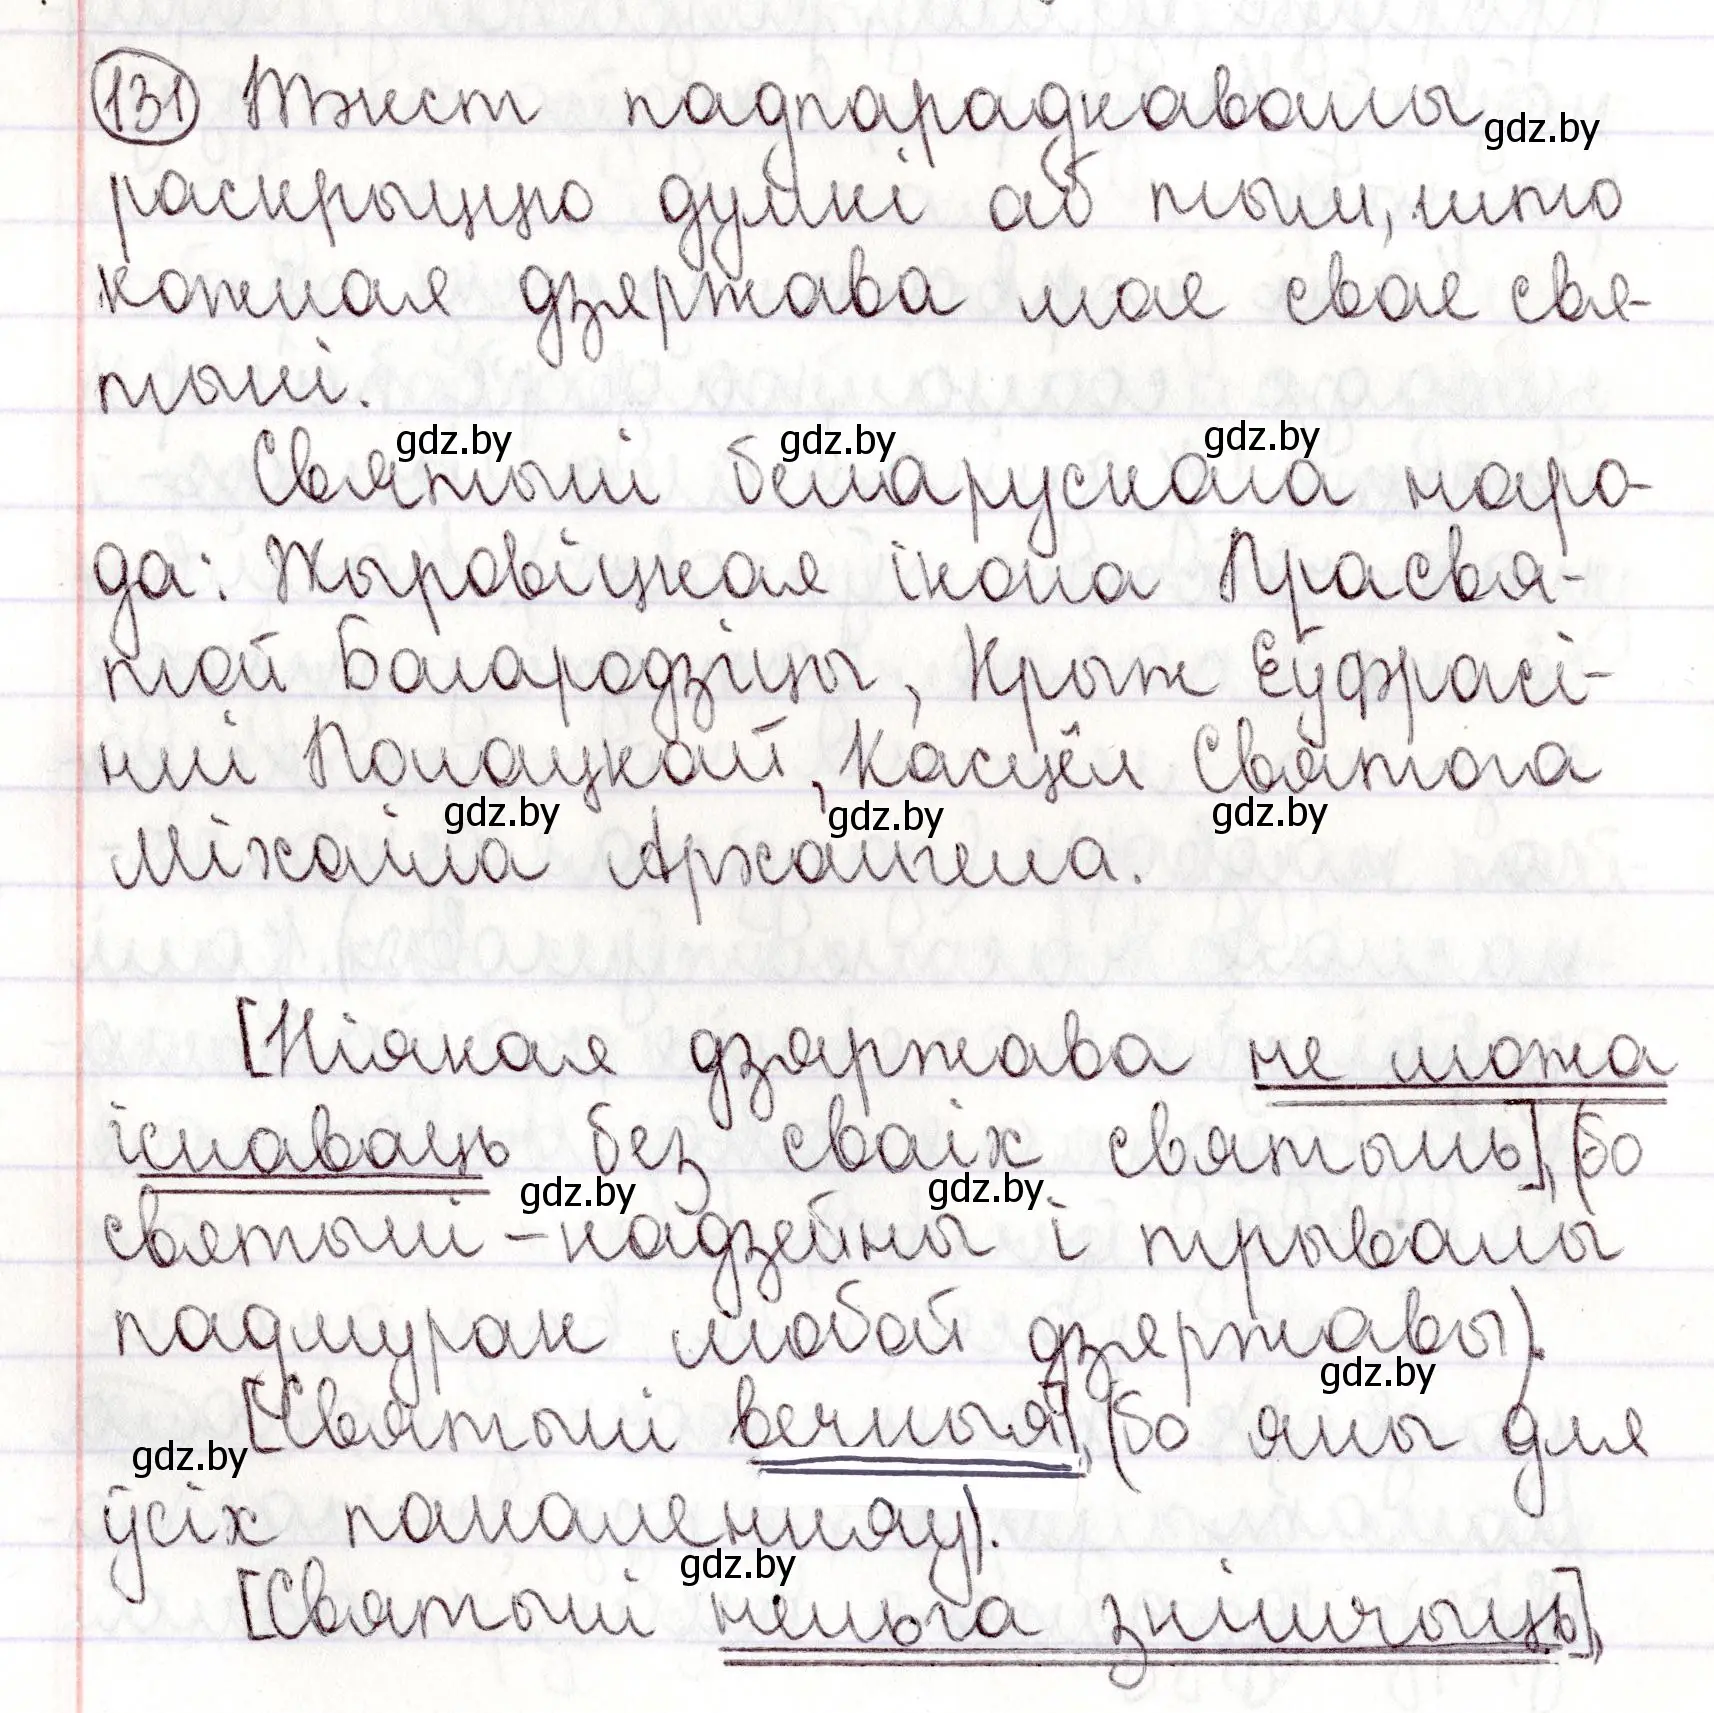 131 Тэкст падпарадкаваны gdz.by
раскрыццю думкі аб тым, што
кожная дзяржава мае свае свя-
тыні.
gdz.by gdz.by gdz.by
Святыні беларускага наро-
да: Жыровіцкая ікона Прасвя-
той Багародзіцы, Крыж Еўфрасі-
нні Полацкай, Касцёл Святога
gdz.by gdz.by gdz.by
Міхаіла Архангела.
[Ніякая дзяржава не можа
існаваць без сваіх святынь], (бо
gdz.by gdz.by
святыні - надзейны і трывалы
падмурак любой дзяржавы).
gdz.by
[Святыні вечныя], (бо яны для
gdz.by
ўсіх пакаленняў).
gdz.by
[Святыні нельга знішчыць],